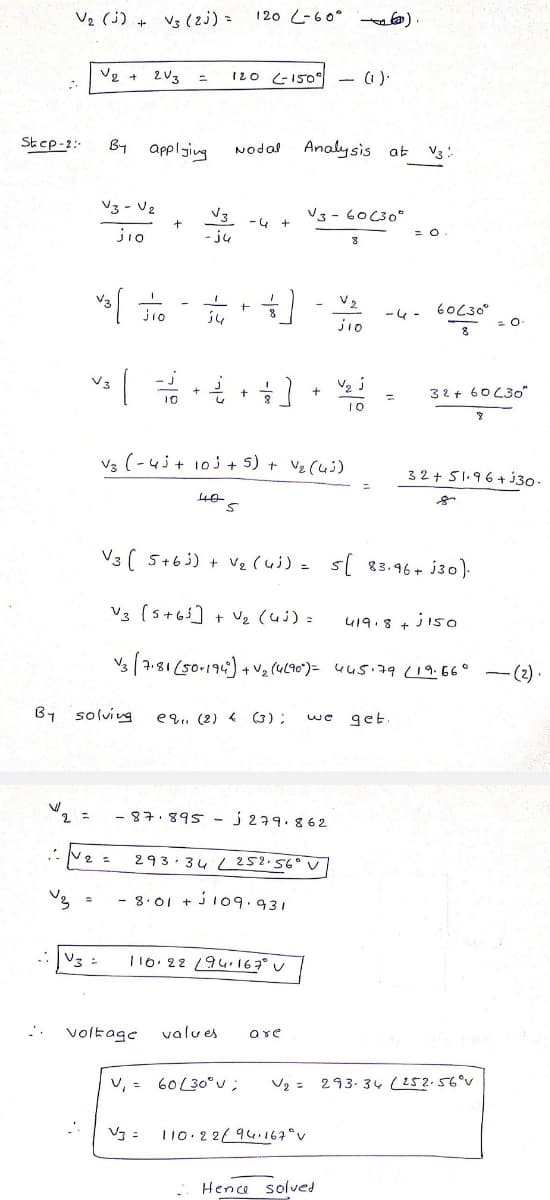 V2 (j) + V3 (2j) = 120 ∠-60° →(6).
∴ V2 + 2V3 = 120 ∠-150° — (1).
Step-2:- By applying Nodal Analysis at V3:
(V3 - V2)/j10 + V3/-j4 - 4 + (V3 - 60∠30°)/8 = 0.
V3 [ 1/j10 - 1/j4 + 1/8 ] - V2/j10 - 4 - 60∠30°/8 = 0.
V3 [ -j/10 + j/4 + 1/8 ] + V2 j/10 = (32 + 60∠30°)/8
(V3 (-4j + 10j + 5) + V2 (4j))/40 5 = (32 + 51.96 + j30.)/8
V3 ( 5+6j) + V2 (4j) = 5[ 83.96 + j30).
V3 [5+6j] + V2 (4j) = 419.8 + j150
V3 [7.81∠50.194°] + V2 (4∠90°) = 445.79 ∠19.66° — (2).
By solving eqn (2) & (3); we get.
V2 = - 87.895 - j 279.862
∴ V2 = 293.34 ∠252.56° V
V3 = - 8.01 + j 109.931
∴ V3 = 110.22 ∠94.167° V
∴ voltage values are
V1 = 60∠30° V; V2 = 293.34 ∠252.56° V
∴ V3 = 110.22∠94.167° V
∴ Hence solved